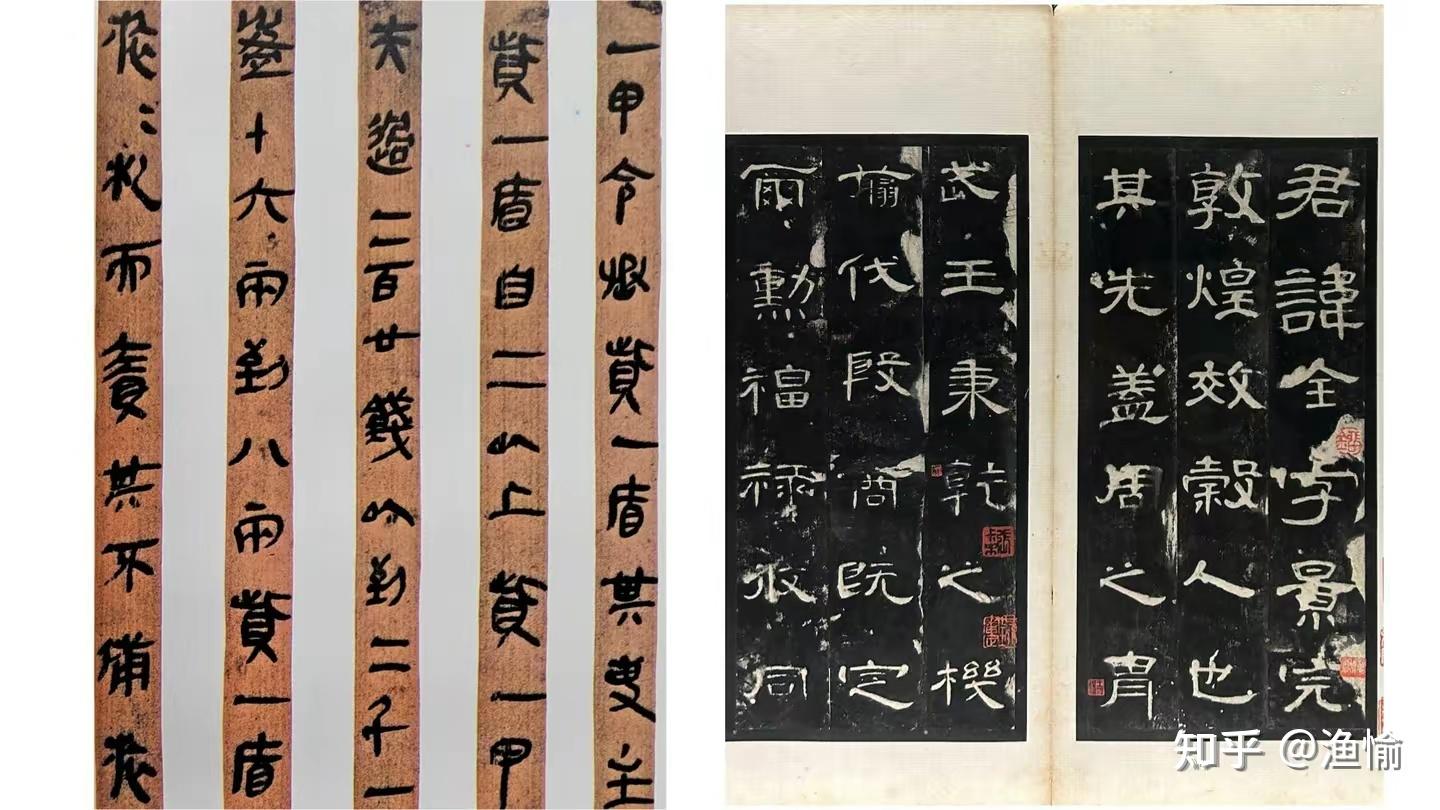 君諱全字景完
敦煌效穀人也
其先蓋周之胄
武王秉乾之機
翦伐殷商既定
爾勳福祿攸同
一甲令丞貲一盾其吏主
貲一盾自二以上貲一甲
夫過二百廿錢以到二千一
盈十六兩到八兩貲一盾
旅〻札而責其不備旅
知乎 @渔愉